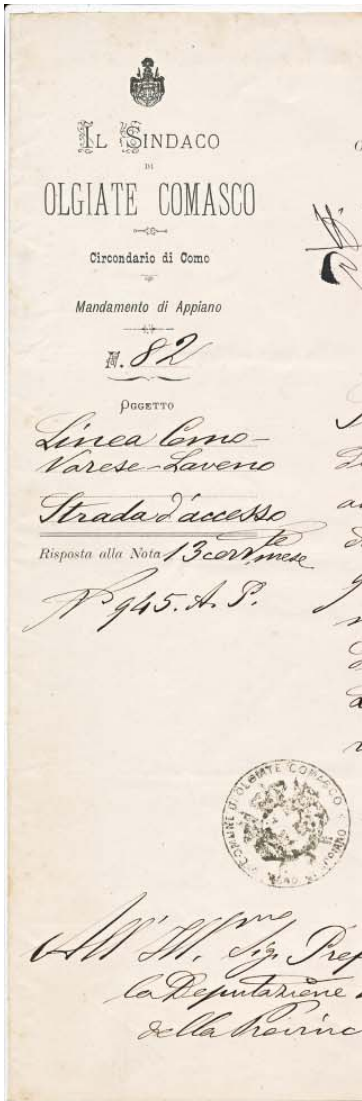 IL SINDACO
DI
OLGIATE COMASCO
Circondario di Como
Mandamento di Appiano
N. 82
OGGETTO
Linea Como-
Varese-Laveno
Strada d'accesso
Risposta alla Nota 13 corr.te mese
No 945. A. P.
COMUNE DI OLGIATE COMASCO
All' Ill.mo Sig. Pref
la Deputazione
della Provinc